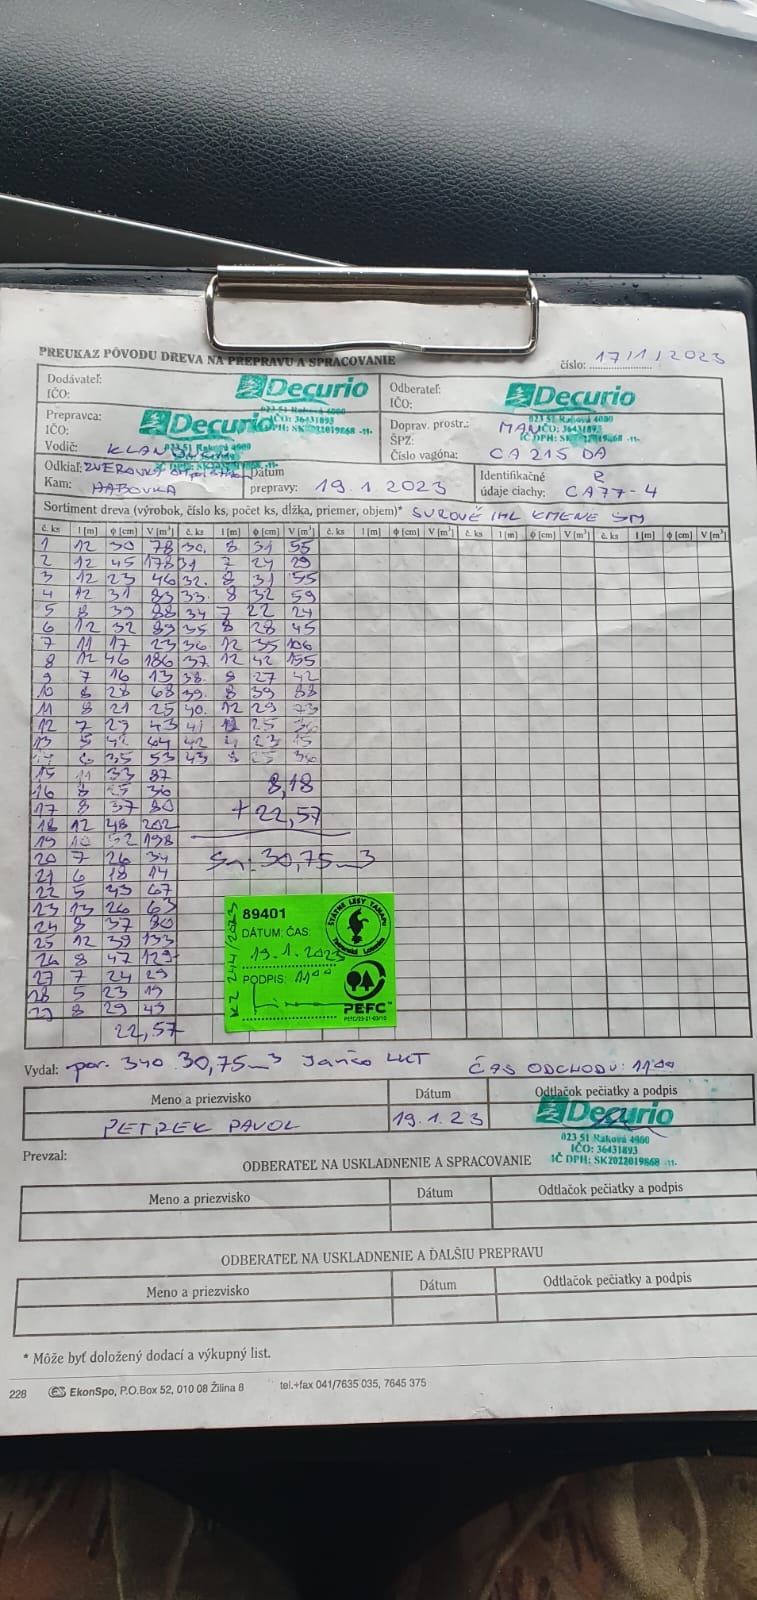 PREUKAZ PÔVODU DREVA NA PREPRAVU A SPRACOVANIE
číslo: 17/1/2023
Dodávateľ: Decurio
IČO:
Odberateľ: Decurio
IČO:
023 51 Raková 4000
IČO: 36431893
IČ DPH: SK2022019868 -11-
Prepravca: Decurio
IČO:
Vodič:
Doprav. prostr.: MAN
ŠPZ:
Číslo vagóna: CA 215 DA
Odkiaľ: ZVEROVKA
Kam: HABOVKA
Dátum prepravy: 19.1.2023
Identifikačné údaje ciachy: CA77-4
Sortiment dreva (výrobok, číslo ks, počet ks, dĺžka, priemer, objem)* SUROVÉ IHL KMENE SM
č. ks l [m] ϕ [cm] V [m³] č. ks l [m] ϕ [cm] V [m³] č. ks l [m] ϕ [cm] V [m³] č. ks l [m] ϕ [cm] V [m³] č. ks l [m] ϕ [cm] V [m³]
1 12 30 78 30. 8 31 55
2 12 45 178 31 7 24 29
3 12 23 46 32. 8 31 55
4 12 31 83 33. 8 32 59
5 8 39 88 34 7 22 24
6 12 32 89 35 8 28 45
7 11 17 23 36 12 35 106
8 12 46 186 37 12 42 155
9 7 16 13 38. 27 42
10 8 28 68 39. 8 39 88
11 8 21 25 40. 12 29 73
12 7 29 43 41 25 36
13 5 42 64 42 23 15
35 53 43 8 25 36
15 11 33 87
16 8 25 36 8,18
17 8 37 80 + 22,57
18 12 48 202
19 10 52 198
20 7 26 34 30,75 m3
21 6 18 14
22 5 43 67
23 13 26 63
24 8 37 80
25 12 39 133
26 8 47 129
27 7 24 29
28 5 23 19
29 8 29 43
22,57
89401
DÁTUM: ČAS:
19.1.2023
PODPIS: 11⁰⁰
KZ 244/2023
ŠTÁTNE LESY TANAPU
Tatranská Lomnica
PEFC™
Vydal: por. 340 30,75 m3 Jančo LKT ČAS ODCHODU: 11⁰⁰
Meno a priezvisko Dátum Odtlačok pečiatky a podpis
PETREK PAVOL 19.1.23 Decurio
023 51 Raková 4000
IČO: 36431893
IČ DPH: SK2022019868 -11-
Prevzal:
ODBERATEĽ NA USKLADNENIE A SPRACOVANIE
Meno a priezvisko Dátum Odtlačok pečiatky a podpis
ODBERATEĽ NA USKLADNENIE A ĎALŠIU PREPRAVU
Meno a priezvisko Dátum Odtlačok pečiatky a podpis
* Môže byť doložený dodací a výkupný list.
228 EkonSpo, P.O.Box 52, 010 08 Žilina 8 tel.+fax 041/7635 035, 7645 375